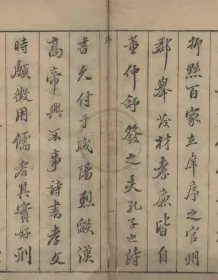 抑黜百家立庠序之官州
郡舉茂材孝廉皆自
董仲舒發之夫孔子之詩
書大付于咸陽烈燄漢
高帝興不事詩書孝文
時頗徵用儒者其實好刑